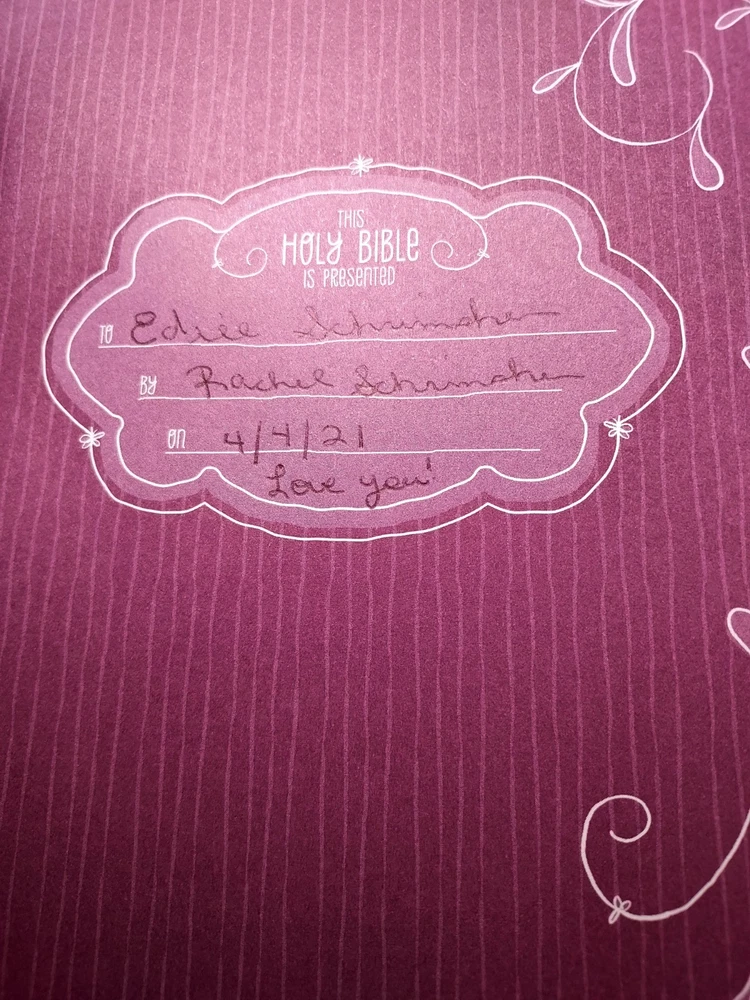 THIS
HOLY BIBLE
IS PRESENTED
TO Edie
BY Rachel
ON 4/4/21
Love you!